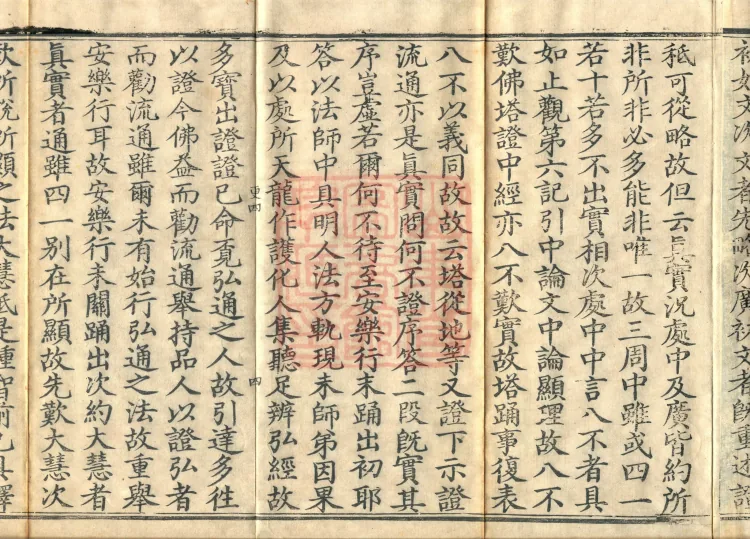 初如文次文者先略次廣初文者既重述證
秖可從略故但云眞實況處中及廣皆約所
非所非必多能非唯一故三周中雖或四一
若十若多不出實相次處中中言八不者具
如止觀第六記引中論文中論顯理故八不
歎佛塔證中經亦八不歎實故塔踊事復表
八不以義同故故云塔從地等又證下示證
流通亦是眞實問何不證序答二段旣實其
序豈虛若爾何不待至安樂行末踊出初耶
答以法師中具明人法方軌現未師弟因果
及以處所天龍作護化人集聽足辨弘經故
更四
四
多寶出證證已命覓弘通之人故引達多往
以證今佛益而勸流通舉持品人以證弘者
而勸流通雖爾未有始行弘通之法故重舉
安樂行耳故安樂行未關踊出次約大慧者
眞實者通雖四一別在所顯故先歎大慧次
歎所說所顯之法大慧秖是種智前已具釋